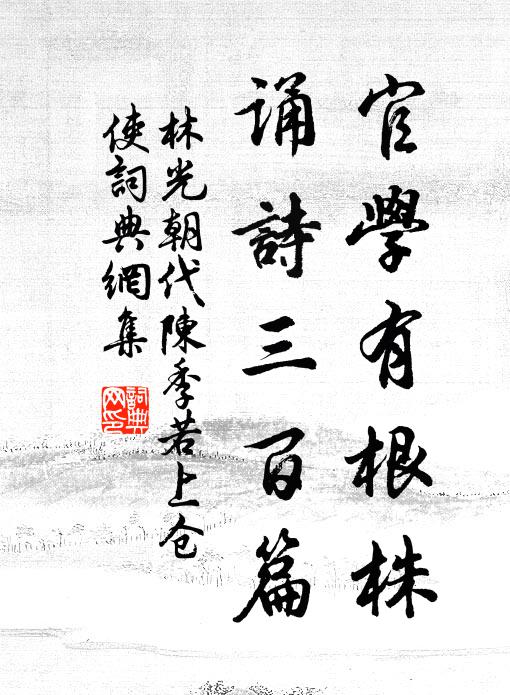 官學有根株
诵詩三百篇
林光朝代陳季若上仓
使詞典網集
詞典
网印